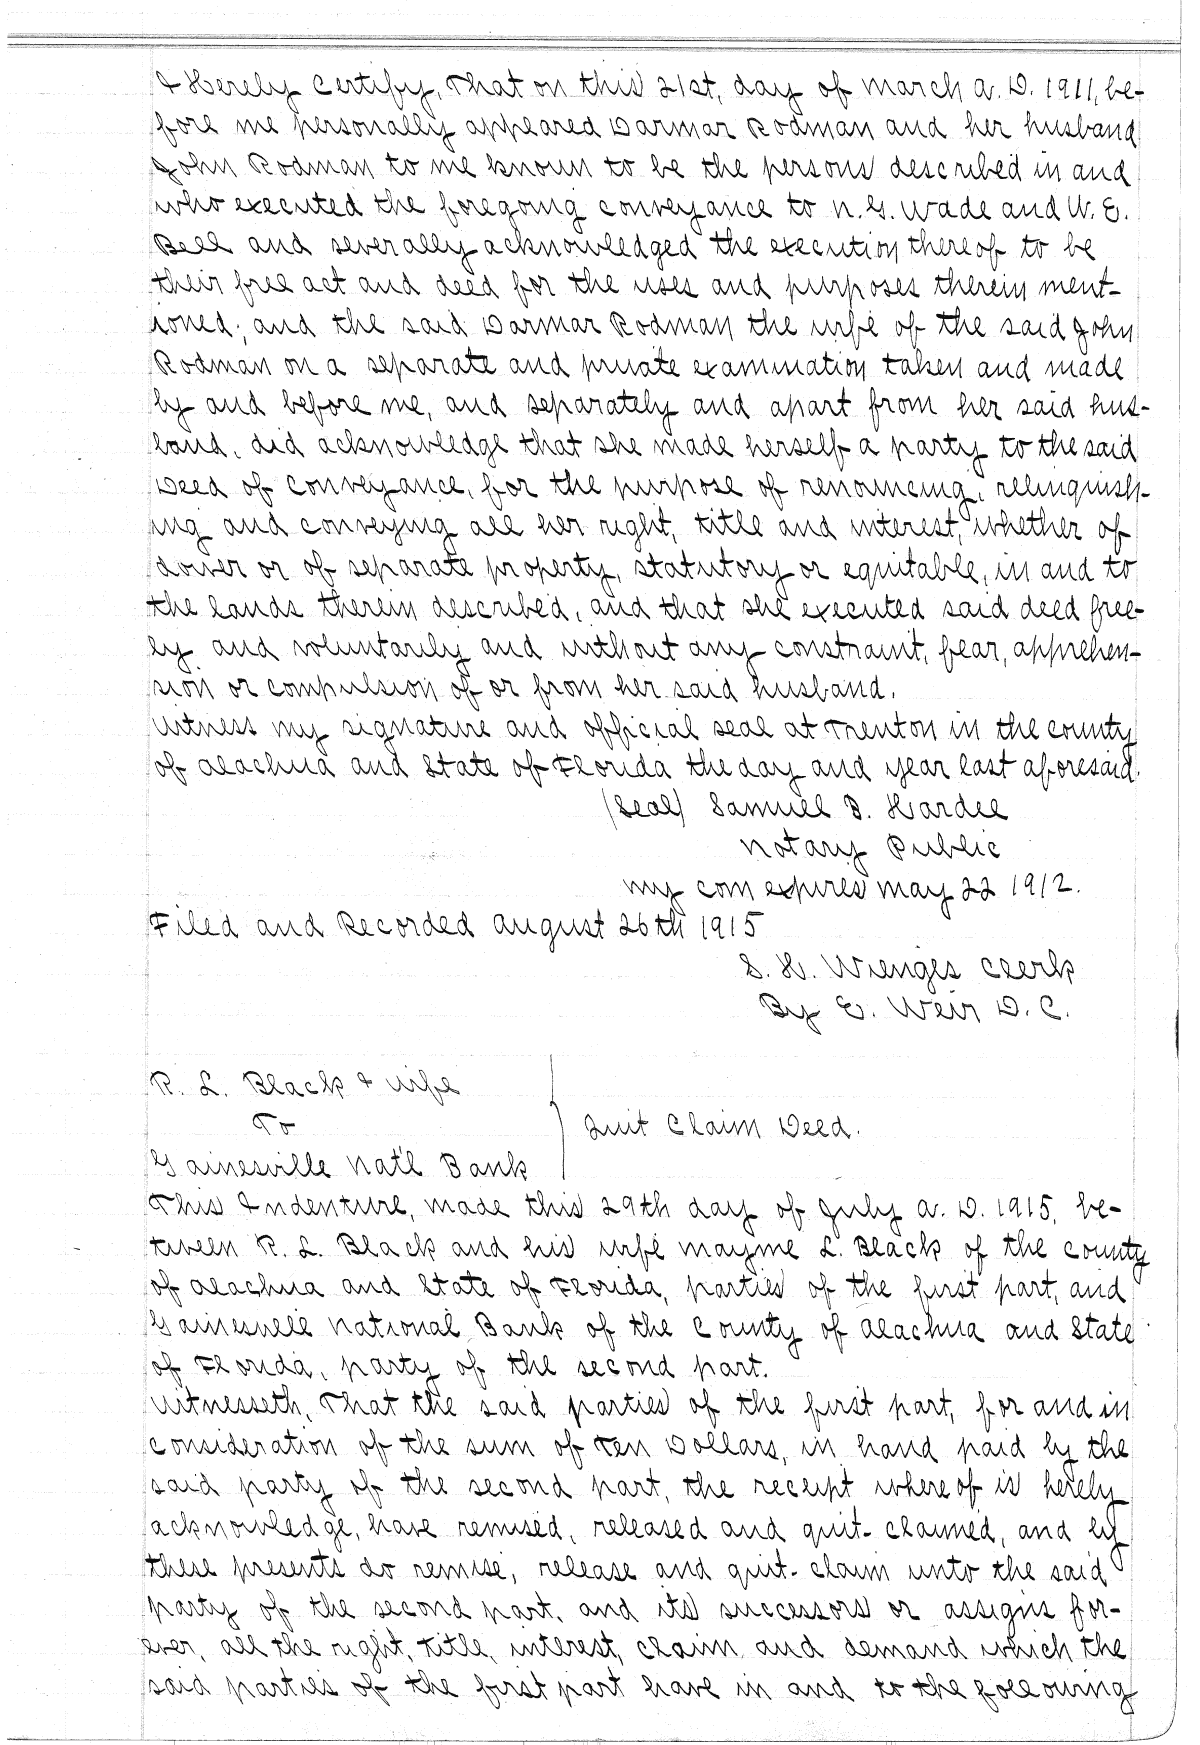 I Hereby Certify, That on this 21st, day of March A. D. 1911, be-
fore me personally appeared Darmar Rodman and her husband
John Rodman to me known to be the persons described in and
who executed the foregoing conveyance to N. G. Wade and W. E.
Bell and severally acknowledged the execution thereof to be
their free act and deed for the uses and purposes therein ment-
ioned; and the said Darmar Rodman the wife of the said John
Rodman on a separate and private examination taken and made
by and before me, and separately and apart from her said hus-
band, did acknowledge that she made herself a party to the said
Deed of Conveyance, for the purpose of renouncing, relinquish-
ing and conveying all her right, title and interest, whether of
dower or of separate property, statutory or equitable, in and to
the lands therein described, and that she executed said deed free-
ly and voluntarily and without any constraint, fear, apprehen-
sion or compulsion of or from her said husband.
Witness my signature and official seal at Trenton in the County
of Alachua and State of Florida the day and year last aforesaid.
(Seal) Samuel B. Hardee
Notary Public
My com expires May 22 1912.
Filed and Recorded August 26th 1915
S. H. Wienges Clerk
By E. Weir D. C.
R. L. Black & wife
To
Quit Claim Deed.
Gainesville Nat'l Bank
This Indenture, made this 29th day of July A. D. 1915, be-
tween R. L. Black and his wife Mayme L. Black of the County
of Alachua and State of Florida, parties of the first part, and
Gainesville National Bank of the County of Alachua and State
of Florida, party of the second part.
Witnesseth, That the said parties of the first part, for and in
consideration of the sum of Ten Dollars, in hand paid by the
said party of the second part, the receipt whereof is hereby
acknowledge, have remised, released and quit-claimed, and by
these presents do remise, release and quit-claim unto the said
party of the second part, and its successors or assigns for-
ever, all the right, title, interest, claim and demand which the
said parties of the first part have in and to the following